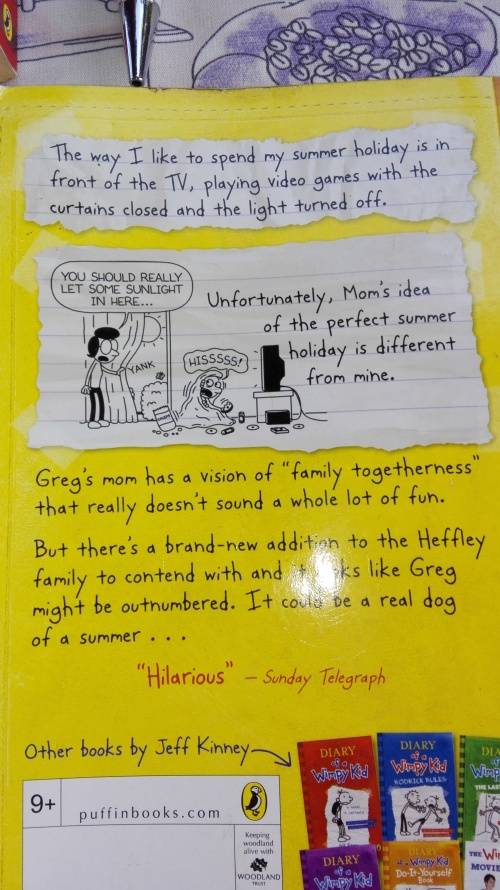 The way I like to spend my summer holiday is in
front of the TV, playing video games with the
curtains closed and the light turned off.
YOU SHOULD REALLY
LET SOME SUNLIGHT
IN HERE...
YANK
HISSSSS!
Unfortunately, Mom's idea
of the perfect summer
holiday is different
from mine.
Greg's mom has a vision of "family togetherness"
that really doesn't sound a whole lot of fun.
But there's a brand-new addition to the Heffley
family to contend with and like Greg
might be outnumbered. It could be a real dog
of a summer . . .
"Hilarious" – Sunday Telegraph
Other books by Jeff Kinney
9+
puffinbooks.com
Keeping
woodland
alive with
WOODLAND
TRUST
DIARY
of a
Wimpy Kid
DIARY
of a
Wimpy Kid
RODRICK RULES
DIARY
THE
DIARY
of a
Wimpy Kid
DIARY
of a Wimpy Kid
Do-It-Yourself
Book
THE
MOVIE